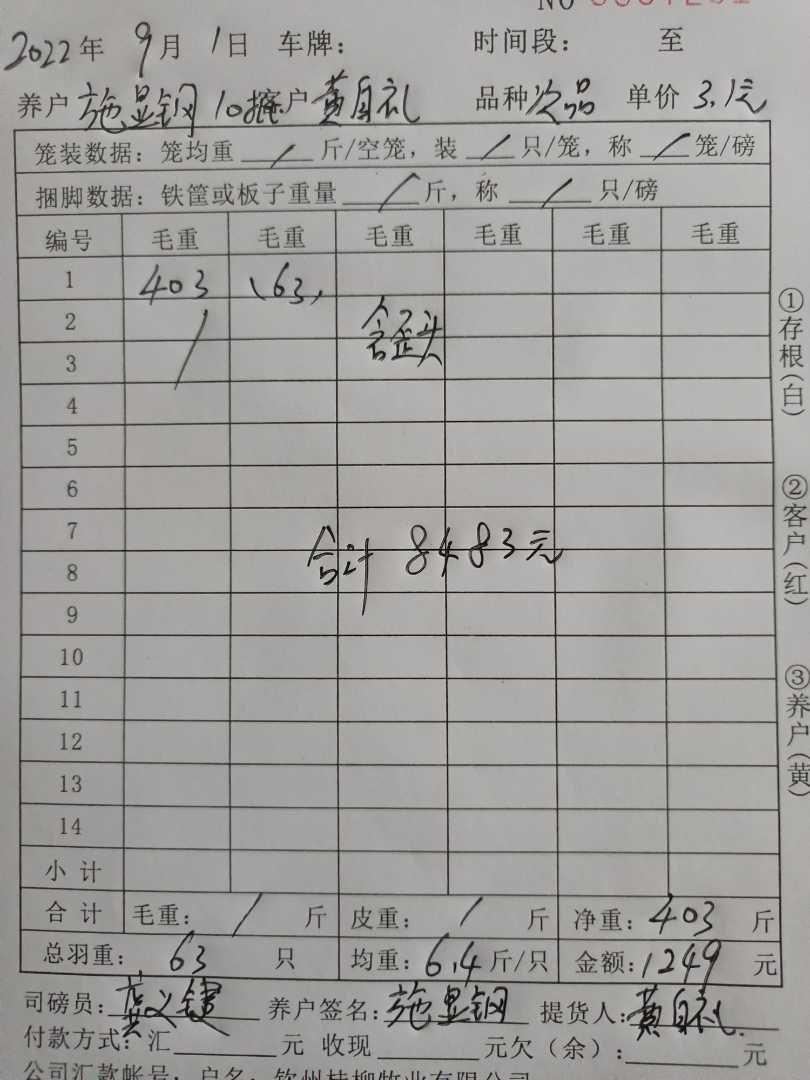 NO
2022年 9月 1日 车牌： 时间段： 至
养户 施显钢 客户 黄自礼 品种 次品 单价 3.1元
笼装数据：笼均重 / 斤/空笼，装 / 只/笼，称 / 笼/磅
捆脚数据：铁筐或板子重量 / 斤，称 / 只/磅
编号 毛重 毛重 毛重 毛重 毛重 毛重
1 403 (63)
2 含歪头
3
4
5
6
7
合计 8483元
8
9
10
11
12
13
14
小计
合计 毛重： / 斤 皮重： / 斤 净重：403 斤
总羽重： 63 只 均重：6.4斤/只 金额：1249 元
司磅员： 养户签名：施显钢 提货人：黄自礼
付款方式：汇 元 收现 元欠（余）： 元
公司汇款帐号：户名：钦州桂柳牧业有限公司
①存根（白）
②客户（红）
③养户（黄）